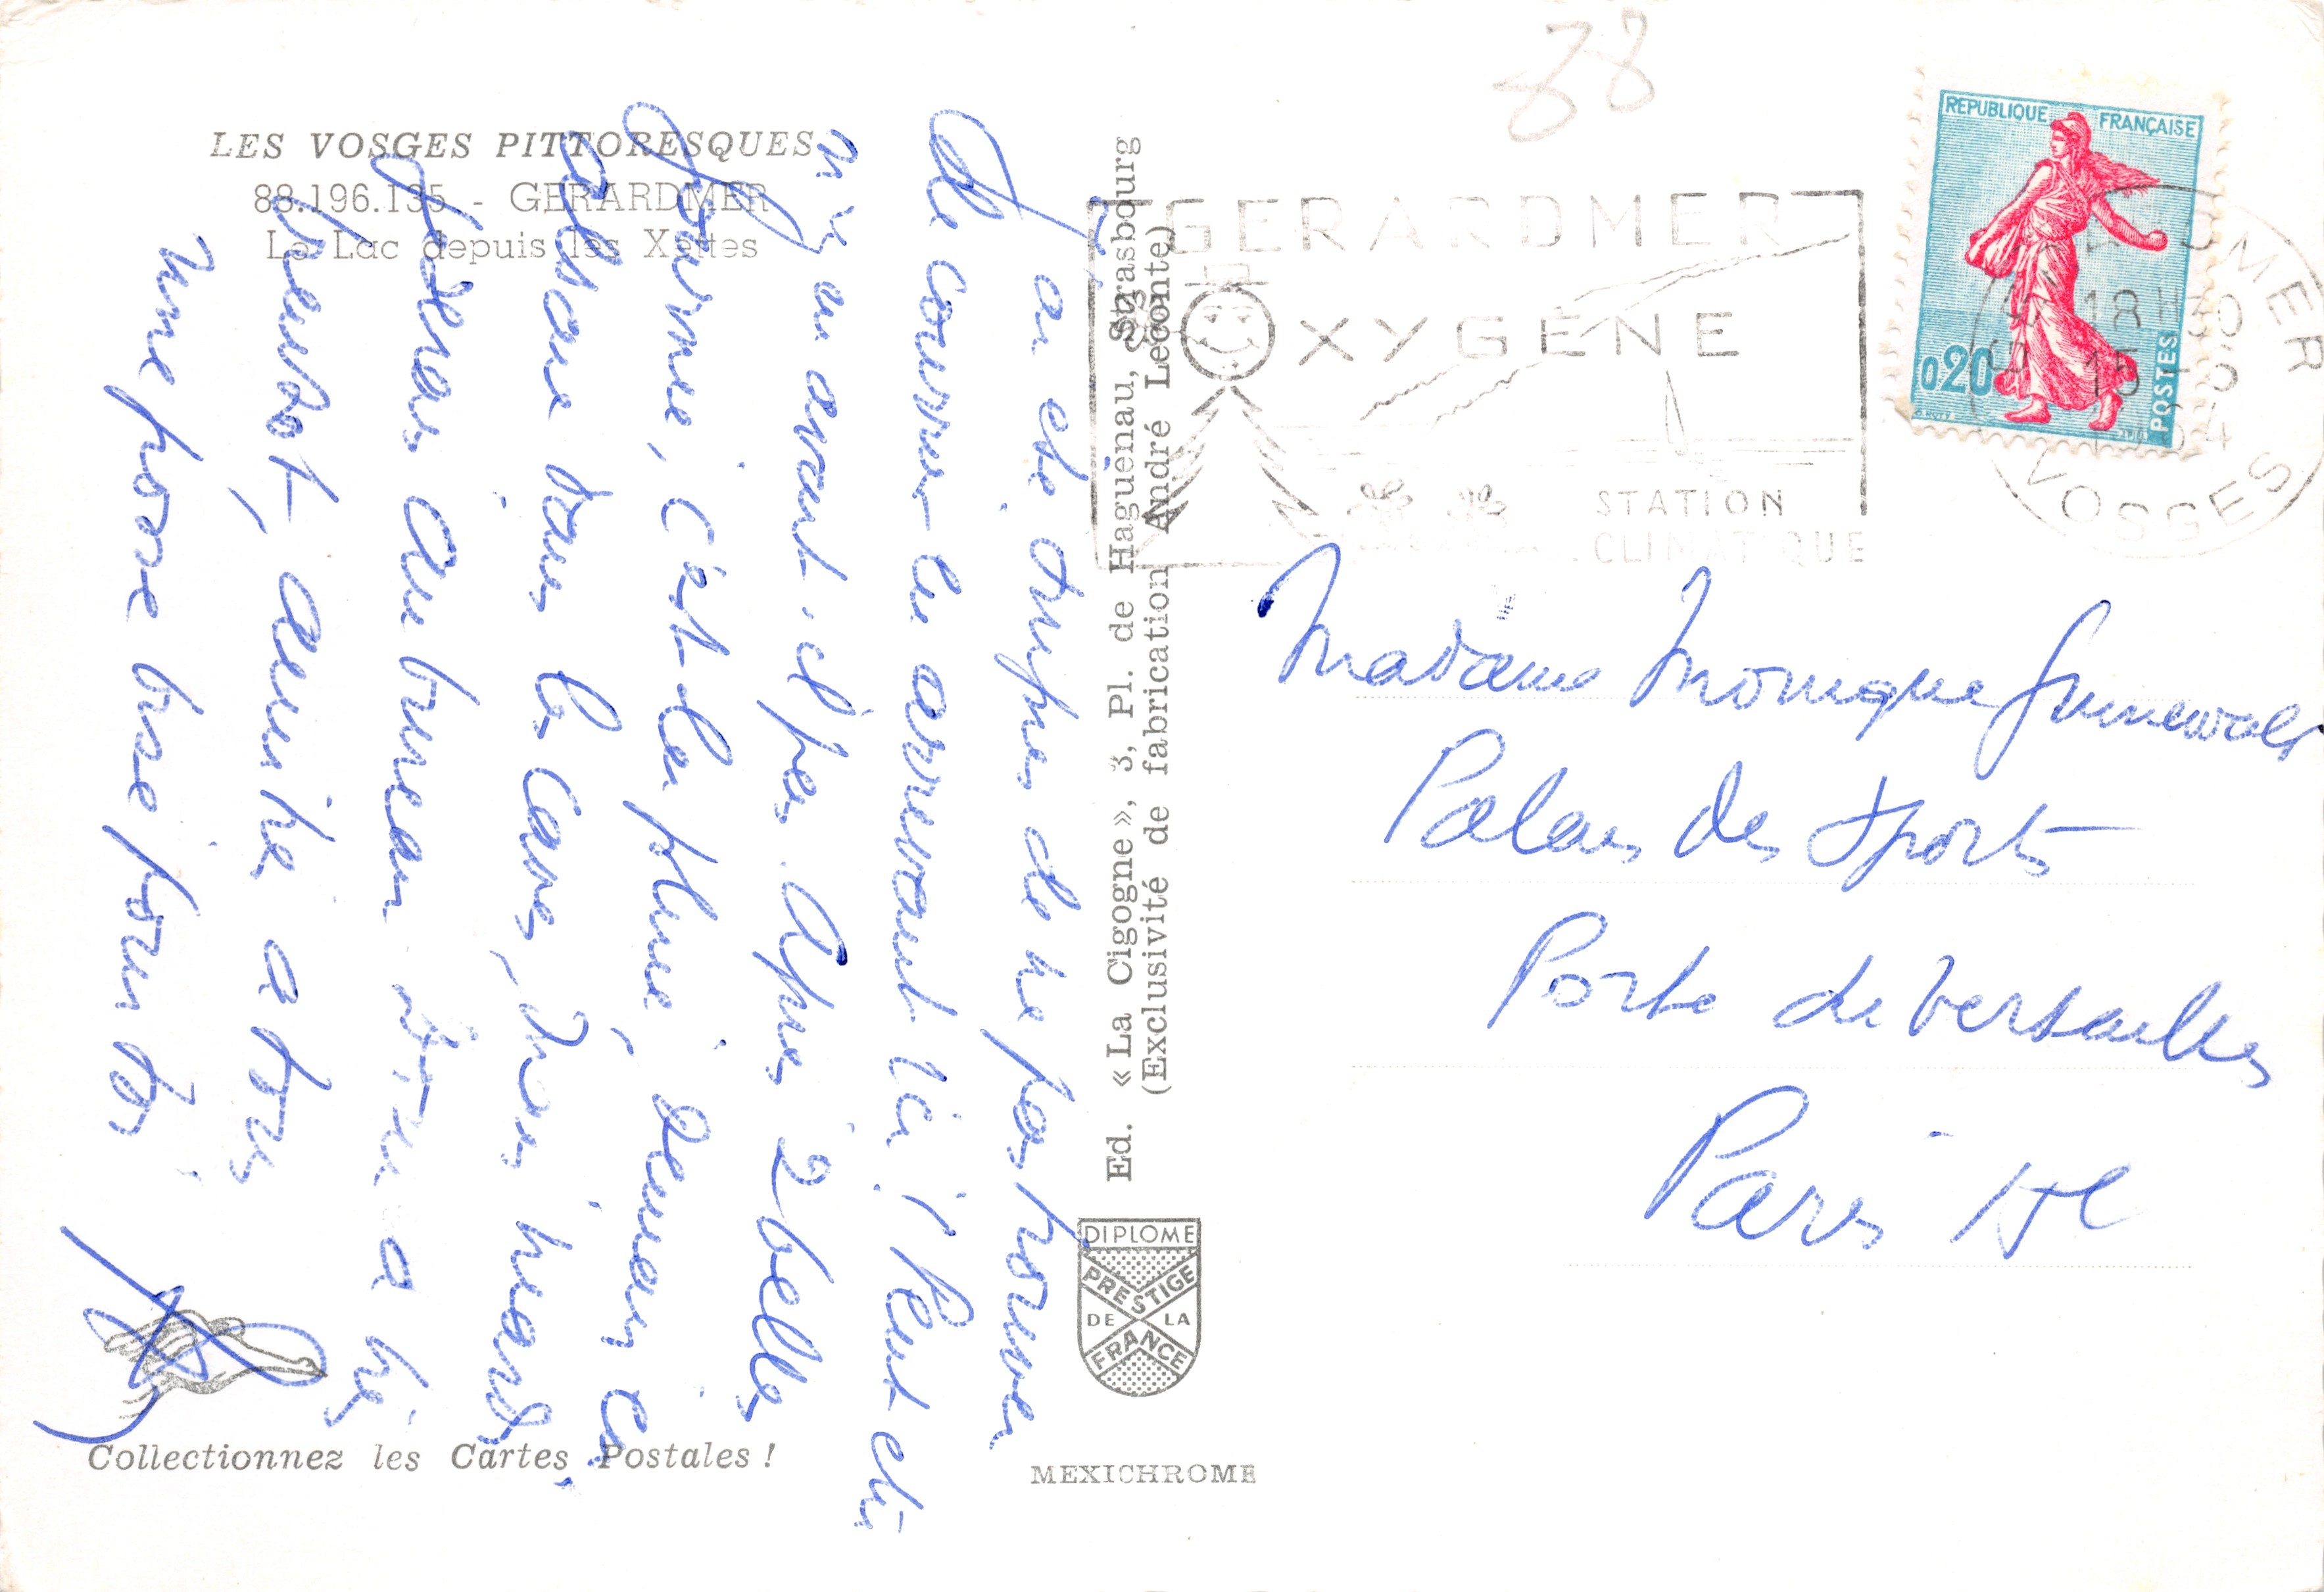 LES VOSGES PITTORESQUES
88.196.135 - GERARDMER
Le Lac depuis les Xettes
J'ai été surpris de ne pas trouver
de courrier en arrivant ici ! Peut être
n'y en avait-il pas. Après 2 belles
journées, c'est la pluie, demain en
Alsace dans les caves,
Je serai au bureau
bientôt, amitiés à tous
une grosse bise pour toi
Collectionnez les Cartes Postales !
Ed. « La Cigogne », 3, Pl. de Haguenau, Strasbourg
(Exclusivité de fabrication André Leconte)
DIPLOME
PRESTIGE
DE LA
FRANCE
MEXICHROME
88
GERARDMER
OXYGÈNE
STATION
CLIMATIQUE
REPUBLIQUE FRANÇAISE
0,20
POSTES
18H30
15
VOSGES
Madame Monique Grunewald
Palais des Sports
Porte de Versailles
Paris